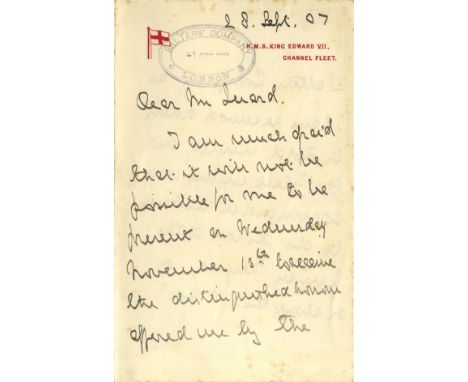 28. Sept. 07
SALTERS' COMPANY
LONDON
H.M.S. KING EDWARD VII.
CHANNEL FLEET.
Dear Mr Luard.
I am much afraid
that it will not be
possible for me to be
present on Wednesday
November 13th to receive
the distinguished honour
offered me by the